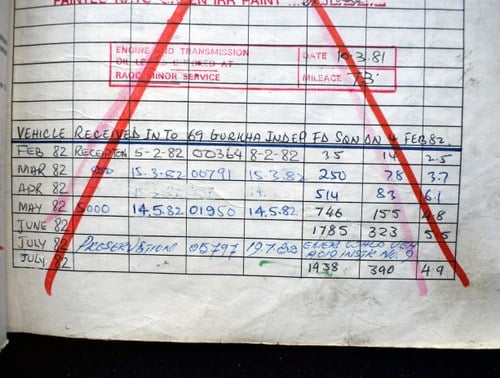 PAINTED NATO GREEN IRR PAINT
ENGINE AND TRANSMISSION
OIL LEVELS CHECKED AT
RAOC MINOR SERVICE
DATE 10.3.81
MILEAGE 73
VEHICLE RECEIVED INTO 69 GURKHA INDEP FD SQN ON 4 FEB 82.
FEB 82 RECEPTION 5-2-82 00364 8-2-82 35 14 2.5
MAR 82 15.3.82 00791 15.3.82 250 78 3.7
APR 82 514 83 6.1
MAY 82 5000 14.5.82 01950 14.5.82 746 155 4.8
JUNE 82 1785 323 5.5
JULY 82 PRESERVATION 05797 19.7.82 INSTR NO. 9
JULY 82 1938 390 4.9